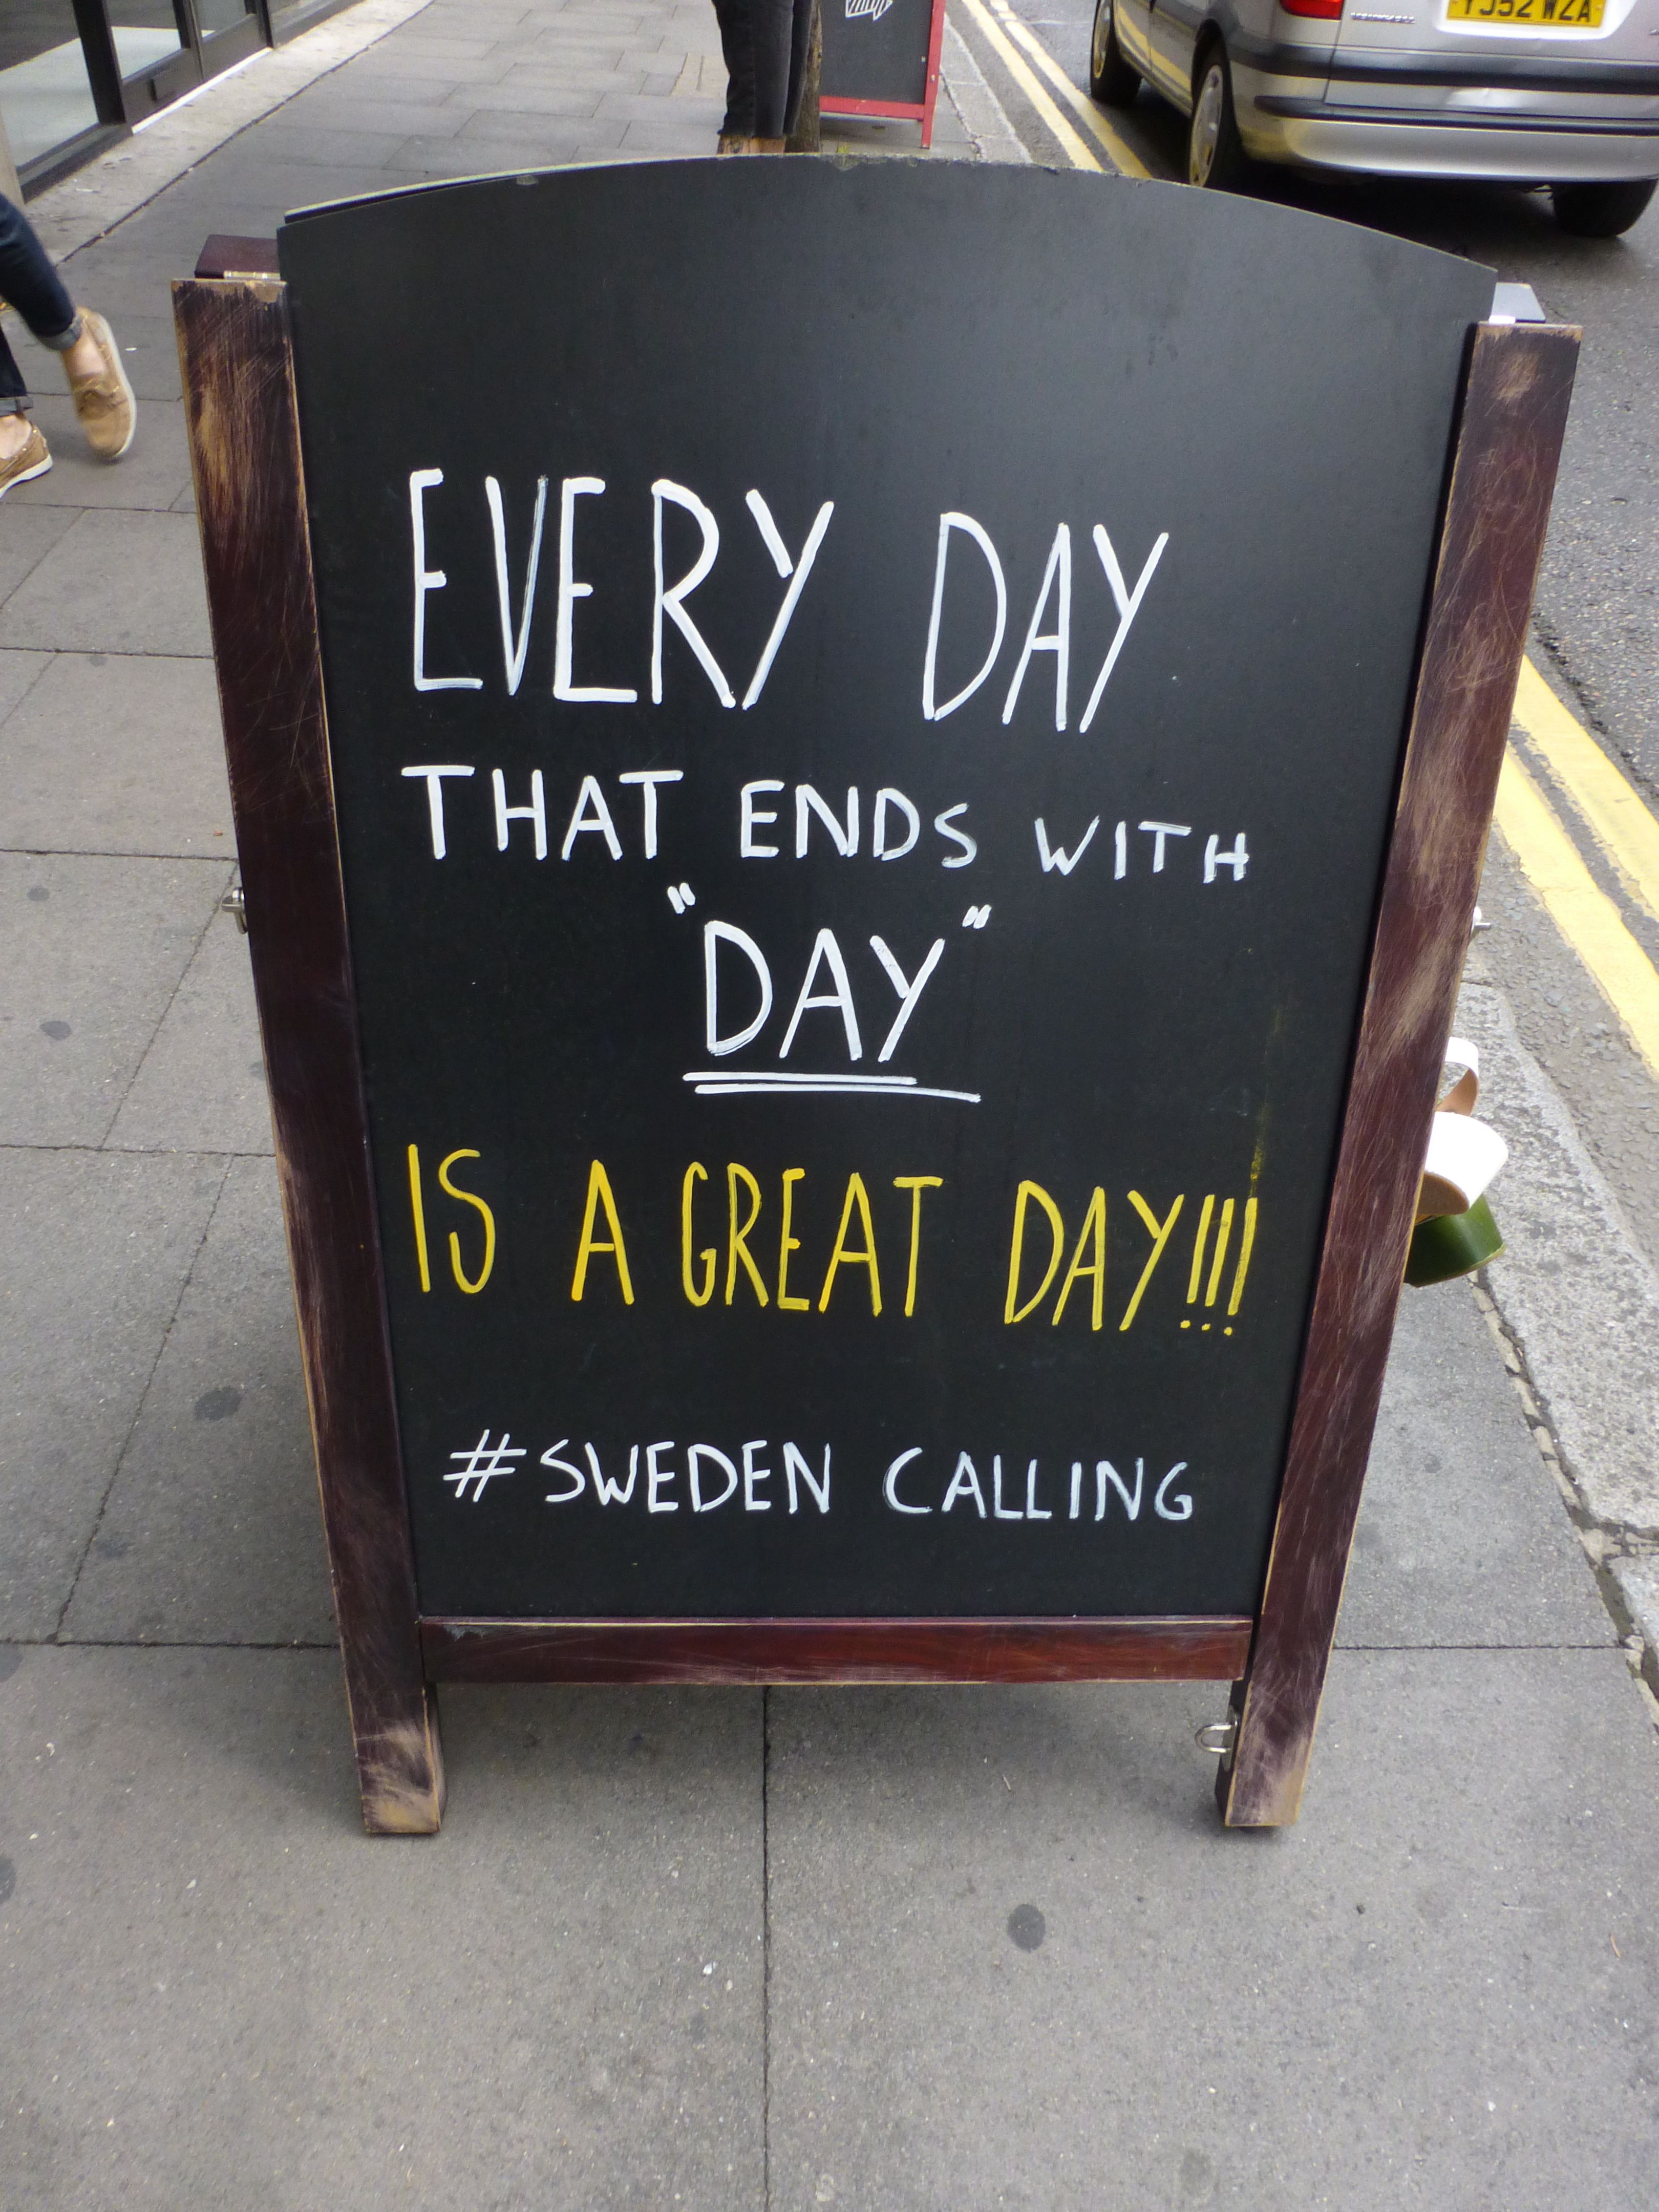 YJ52 WZA
EVERY DAY
THAT ENDS WITH
"DAY"
IS A GREAT DAY!!!
#SWEDEN CALLING